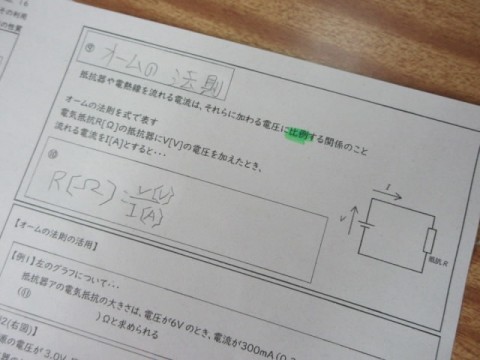 ⑨ オームの 法則
抵抗器や電熱線を流れる電流は、それらに加わる電圧に比例する関係のこと
オームの法則を式で表す
電気抵抗R[Ω]の抵抗器にV[V]の電圧を加えたとき、
流れる電流をI[A]とすると・・・
⑩
R[Ω]=V[V]/I[A]
I
V
抵抗R
【オームの法則の活用】
【例1】左のグラフについて・・・
抵抗器アの電気抵抗の大きさは、電圧が6Vのとき、電流が300mA(0.
(⑪ )Ωと求められる
2(右図)】
の電圧が3.0V